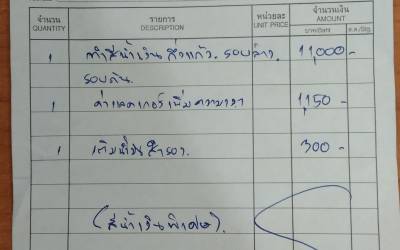 จำนวน รายการ หน่วยละ จำนวนเงิน
QUANTITY DESCRIPTION UNIT PRICE AMOUNT
บาท/Baht ส.ต./Stg.
1 ทำสีน้ำเงิน 11,000-
รอบคัน.
1 ค่าแลคเกอร์เพิ่มความเงา 1,150-
1 เติมน้ำมันสำรอง. 300-
(สีน้ำเงินพิเศษ).